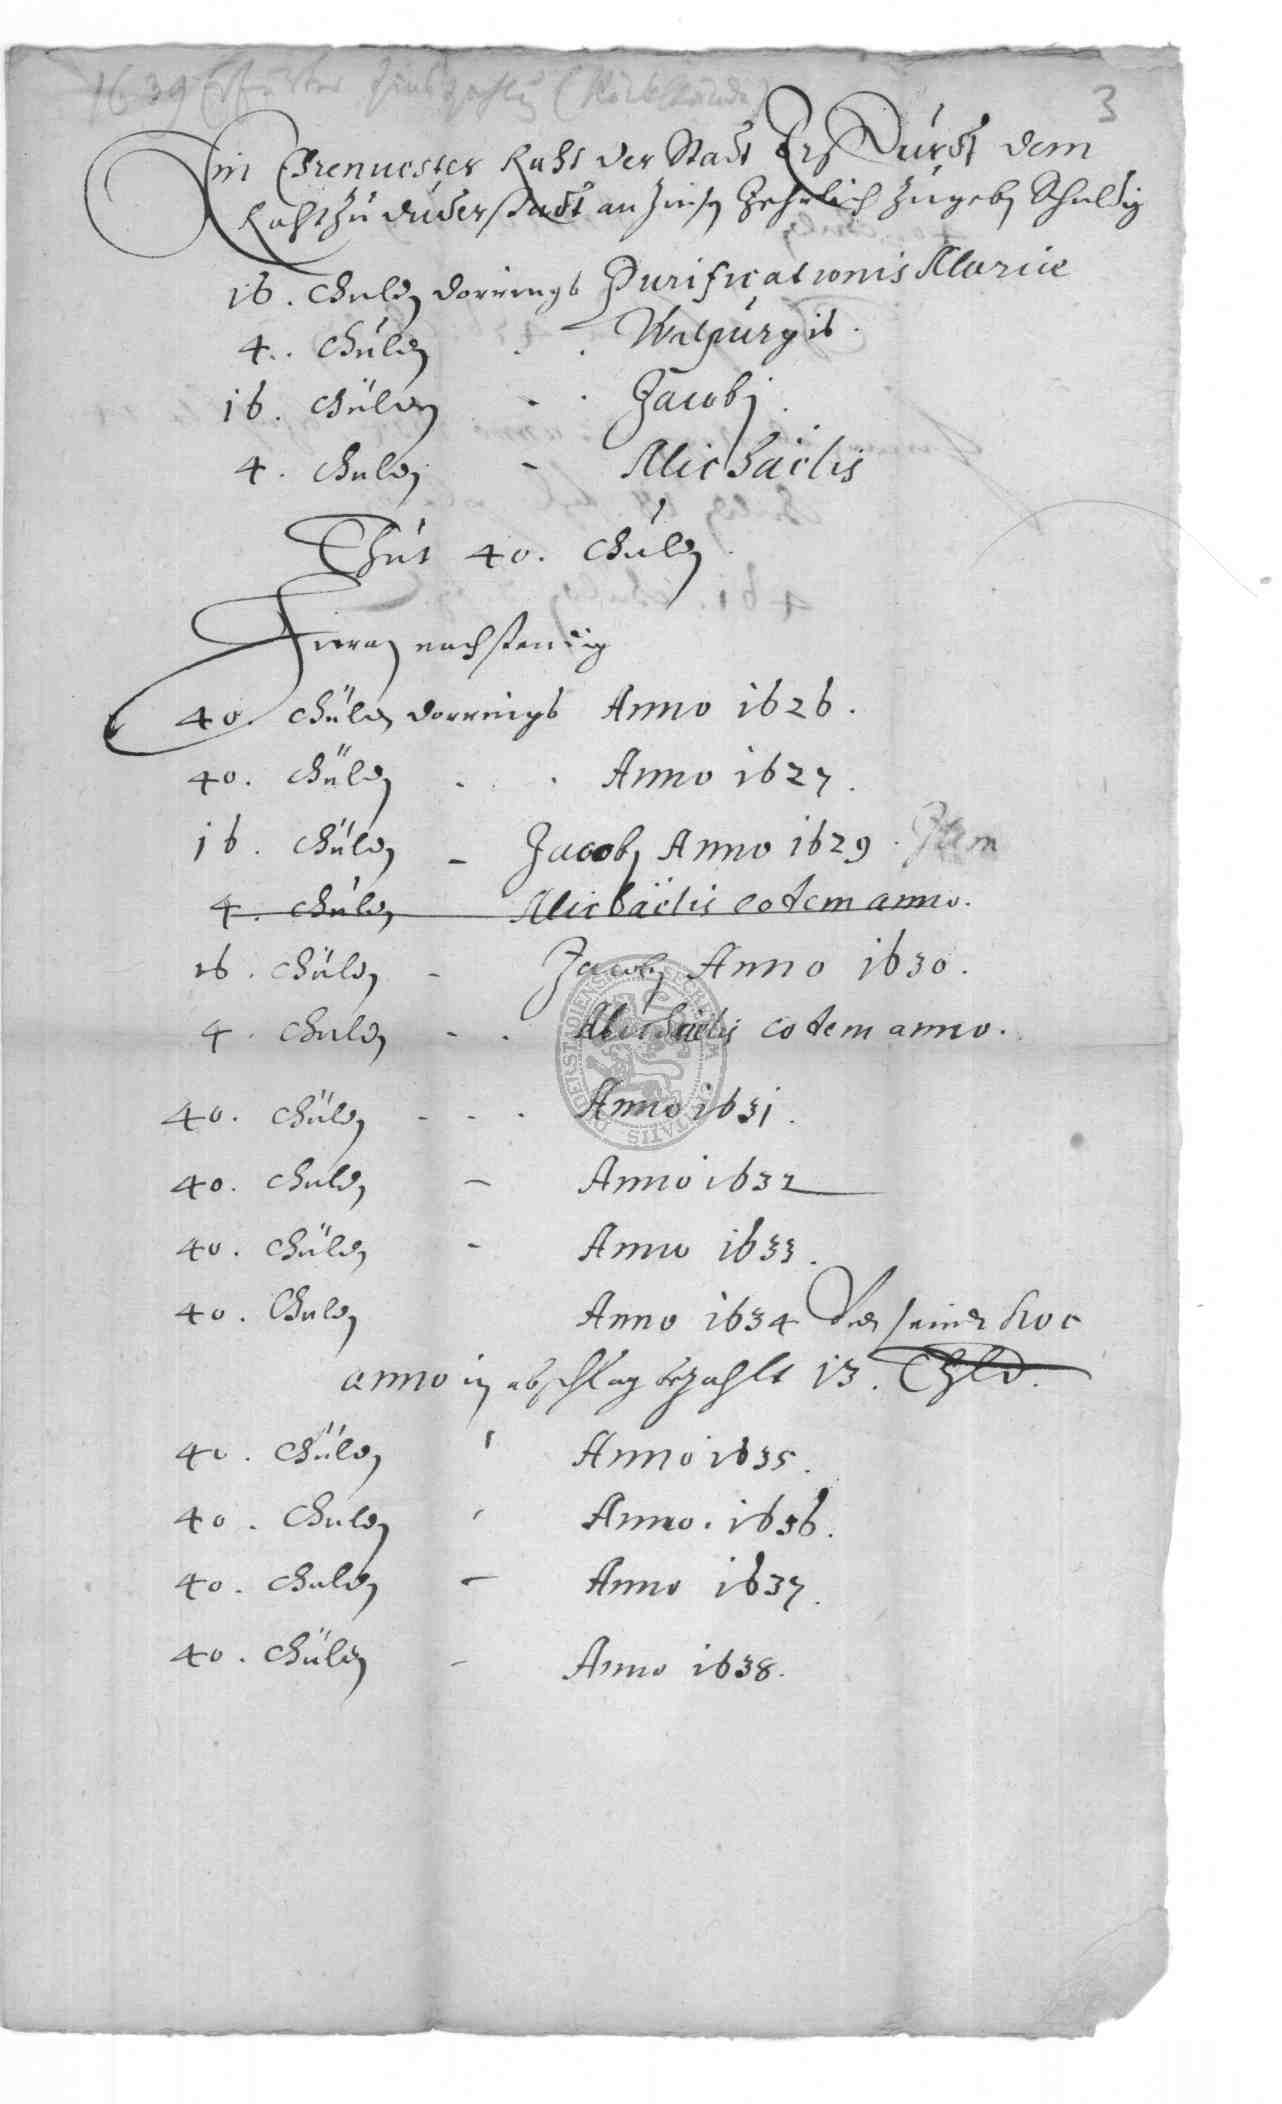 1639 Erfurter Zinszahlg (Rückstände)
3
Ein Ehrenuester Raht der Stadt Erffdurdt dem
Raht zu duderstadt an Zinsen Jehrlich Zugeben Schuldig
16. Gulden Termins Purificationis Mariae
4. Gulden - - Walpurgis.
16. Gulden - - Jacobj.
4. Gulden - Michaelis
Thut 40. Gulden
Hieran nachstendig
40. Gulden Anno 1626.
40. Gulden - - Anno 1627.
16. Gulden - Jacobj Anno 1629. Item
4. Gulden Michaelis eodem anno.
16. Gulden - Jacobj Anno 1630.
4. Gulden - - Michaelis eodem anno.
40. Gulden - - - Anno 1631.
40. Gulden - Anno 1632
40. Gulden - Anno 1633.
40. Gulden Anno 1634 hoc
anno in abschlag bezahlt 13. Thlr.
40. Gulden - Anno 1635.
40. Gulden - Anno. 1636.
40. Gulden - Anno 1637.
40. Gulden - Anno 1638.
SECRETUM CIVITATIS DUDERSTADIENSIS